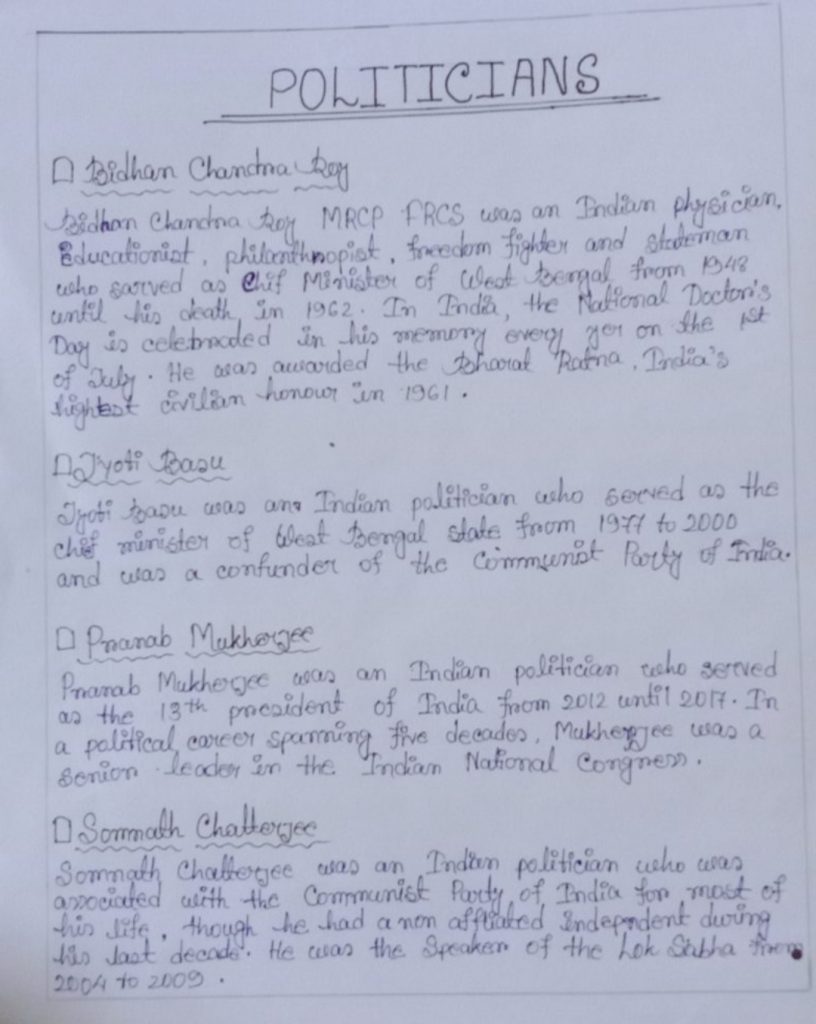 POLITICIANS
Bidhan Chandra Roy
Bidhan Chandra Roy MRCP FRCS was an Indian physician,
Educationist, philanthropist, freedom fighter and stateman
who sarved as Chif Minister of West Bengal from 1948
until his death, in 1962. In India, the National Doctor's
Day is celebraded in his memory every yer on the 1st
of July. He was awarded the Bharat Ratna, India's
hightest civilian honour in 1961.
Jyoti Basu
Jyoti Basu was an Indian politician who served as the
chif minister of West Bengal state from 1977 to 2000
and was a confunder of the Communist Party of India.
Pranab Mukherjee
Pranab Mukherjee was an Indian politician who served
as the 13th president of India from 2012 until 2017. In
a political career spanning five decades, Mukherjee was a
senior leader in the Indian National Congress.
Somnath Chatterjee
Somnath Chatterjee was an Indian politician who was
associated with the Communist Party of India for most of
his life, though he had a non affliated Independent during
his last decade. He was the Speaker of the Lok Sabha from
2004 to 2009.